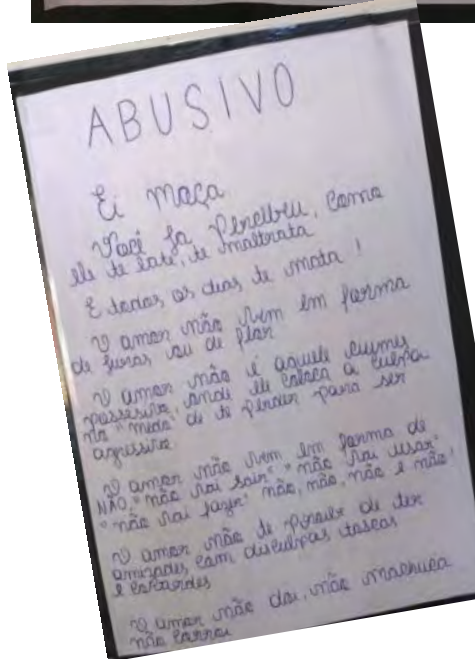 ABUSIVO
Ei moça
Você ja Percebeu, como
ele te bate, te maltrata
E todos os dias te mata!
O amor não vem em forma
de furos ou de flor
O amor não é aquele ciumes
possessivo, onde ele coloca a culpa
no "medo" de te perder para ser
agressivo
O amor não vem em forma de
NÃO, "não vai sair" "não vai usar"
"não vai fazer" não, não, não e não!
O amor não te Proibe de ter
amizades, com desculpas toscas
e covardes
O amor não doi, não machuca
não